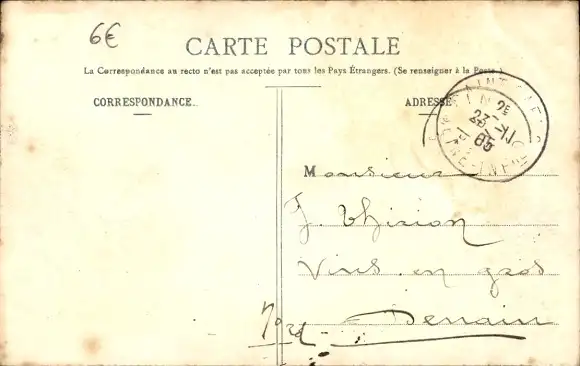 6€
CARTE POSTALE
La Correspondance au recto n'est pas acceptée par tous les Pays Étrangers. (Se renseigner à la Poste.)
CORRESPONDANCE.
ADRESSE
Monsieur
J. Thirion
Vins en gros
Denain
Nord